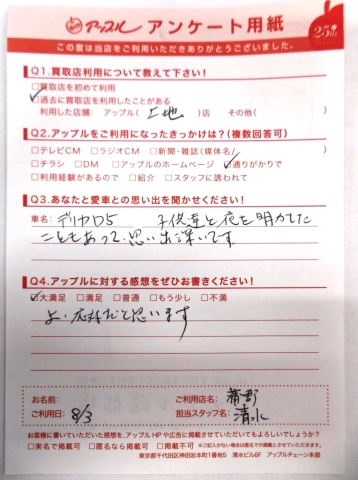 アップル アンケート用紙
25th
この度は当店をご利用いただきありがとうございました。
Q1.買取店利用について教えて下さい!
□買取店を初めて利用
□過去に買取店を利用したことがある
利用した店舗: アップル( 上地 )店 その他( )
Q2.アップルをご利用になったきっかけは?(複数回答可)
□テレビCM □ラジオCM □新聞・雑誌(媒体名/ )
□チラシ □DM □アップルのホームページ □通りがかりで
□利用経験があるので □紹介 □スタッフに誘われて
Q3.あなたと愛車との思い出を聞かせください!
車名: デリカD5 子供達と夜を明かした
こともあって、思い出深いです
Q4.アップルに対する感想をぜひお書きください!
□大満足 □満足 □普通 □もう少し □不満
よい応対だと思います
お名前:
ご利用店名: 蒲郡
ご利用日: 8/3
担当スタッフ名: 清水
お客様に書いていただいた感想を、アップルHPや広告に掲載させていただいてもよろしいでしょうか?
□実名で掲載可 □匿名なら掲載可 □掲載不可 ※ご記入がない場合は匿名での掲載とさせていただきます。
東京都千代田区神田岩本町1番地5 清水ビル6F アップルチェーン本部